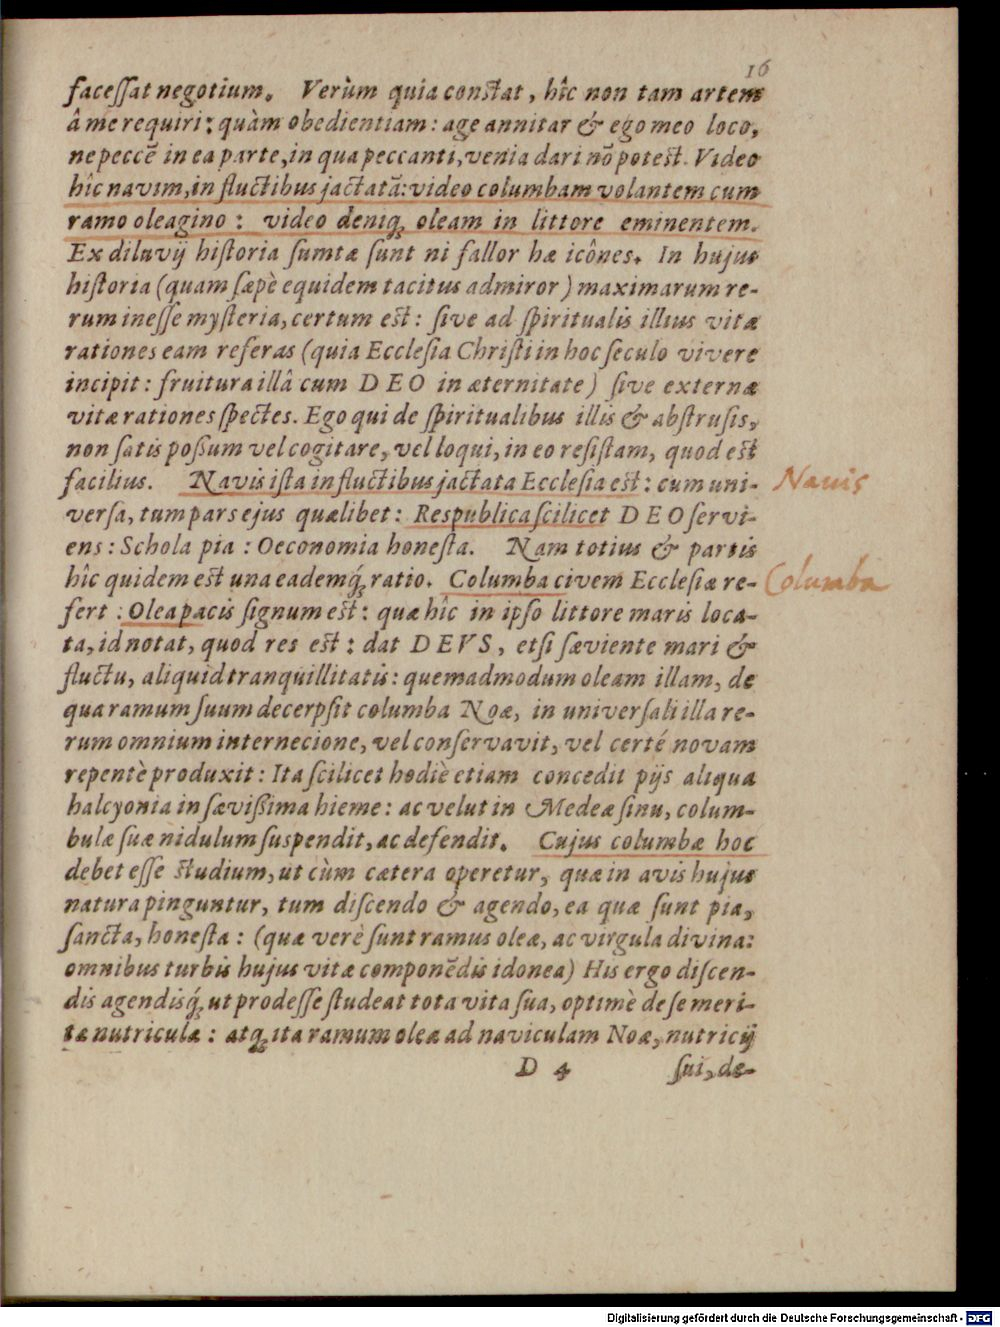 16
faceſſat negotium. Verùm quia conſtat, hîc non tam artem
â me requiri; quàm obedientiam: age annitar & ego meo loco,
ne peccē in ea parte, in qua peccanti, venia dari nō poteſt. Video
hîc navim, in fluctibus jactatā: video columbam volantem cum
ramo oleagino: video deniq; oleam in littore eminentem.
Ex diluvij hiſtoria ſumtæ ſunt ni fallor hæ icônes. In hujus
hiſtoria (quam ſæpè equidem tacitus admiror) maximarum re-
rum ineſſe myſteria, certum eſt: ſive ad ſpiritualis illius vitæ
rationes eam referas (quia Eccleſia Chriſti in hoc ſeculo vivere
incipit: fruitura illâ cum DEO in æternitate) ſive externæ
vitæ rationes ſpectes. Ego qui de ſpiritualibus illis & abſtruſis,
non ſatis poßum vel cogitare, vel loqui, in eo reſiſtam, quod eſt
facilius. Navis iſta in fluctibus jactata Eccleſia eſt: cum uni-
Navis
verſa, tum pars ejus quælibet: Respublica ſcilicet DEO ſervi-
ens: Schola pia: Oeconomia honeſta. Nam totius & partis
hîc quidem eſt una eademq́; ratio. Columba civem Eccleſiæ re-
Columba
fert: Olea pacis ſignum eſt: quæ hîc in ipſo littore maris loca-
ta, id notat, quod res eſt: dat DEVS, etſi ſæviente mari &
fluctu, aliquid tranquillitatis: quemadmodum oleam illam, de
qua ramum ſuum decerpſit columba Noæ, in univerſali illa re-
rum omnium internecione, vel conſervavit, vel certé novam
repentè produxit: Ita ſcilicet hodiè etiam concedit pijs aliqua
halcyonia in ſævißima hieme: ac velut in Medeæ ſinu, colum-
bulæ ſuæ nidulum ſuspendit, ac defendit. Cujus columbæ hoc
debet eſſe ſtudium, ut cùm cætera operetur, quæ in avis hujus
natura pinguntur, tum diſcendo & agendo, ea quæ ſunt pia,
ſancta, honeſta: (quæ verè ſunt ramus oleæ, ac virgula divina:
omnibus turbis hujus vitæ componēdis idonea) His ergo diſcen-
dis agendisq́; ut prodeſſe ſtudeat tota vita ſua, optimè de ſe meri-
tæ nutriculæ: atq; ita ramum oleæ ad naviculam Noæ, nutricij
D 4 ſui, de-
Digitalisierung gefördert durch die Deutsche Forschungsgemeinschaft - DFG